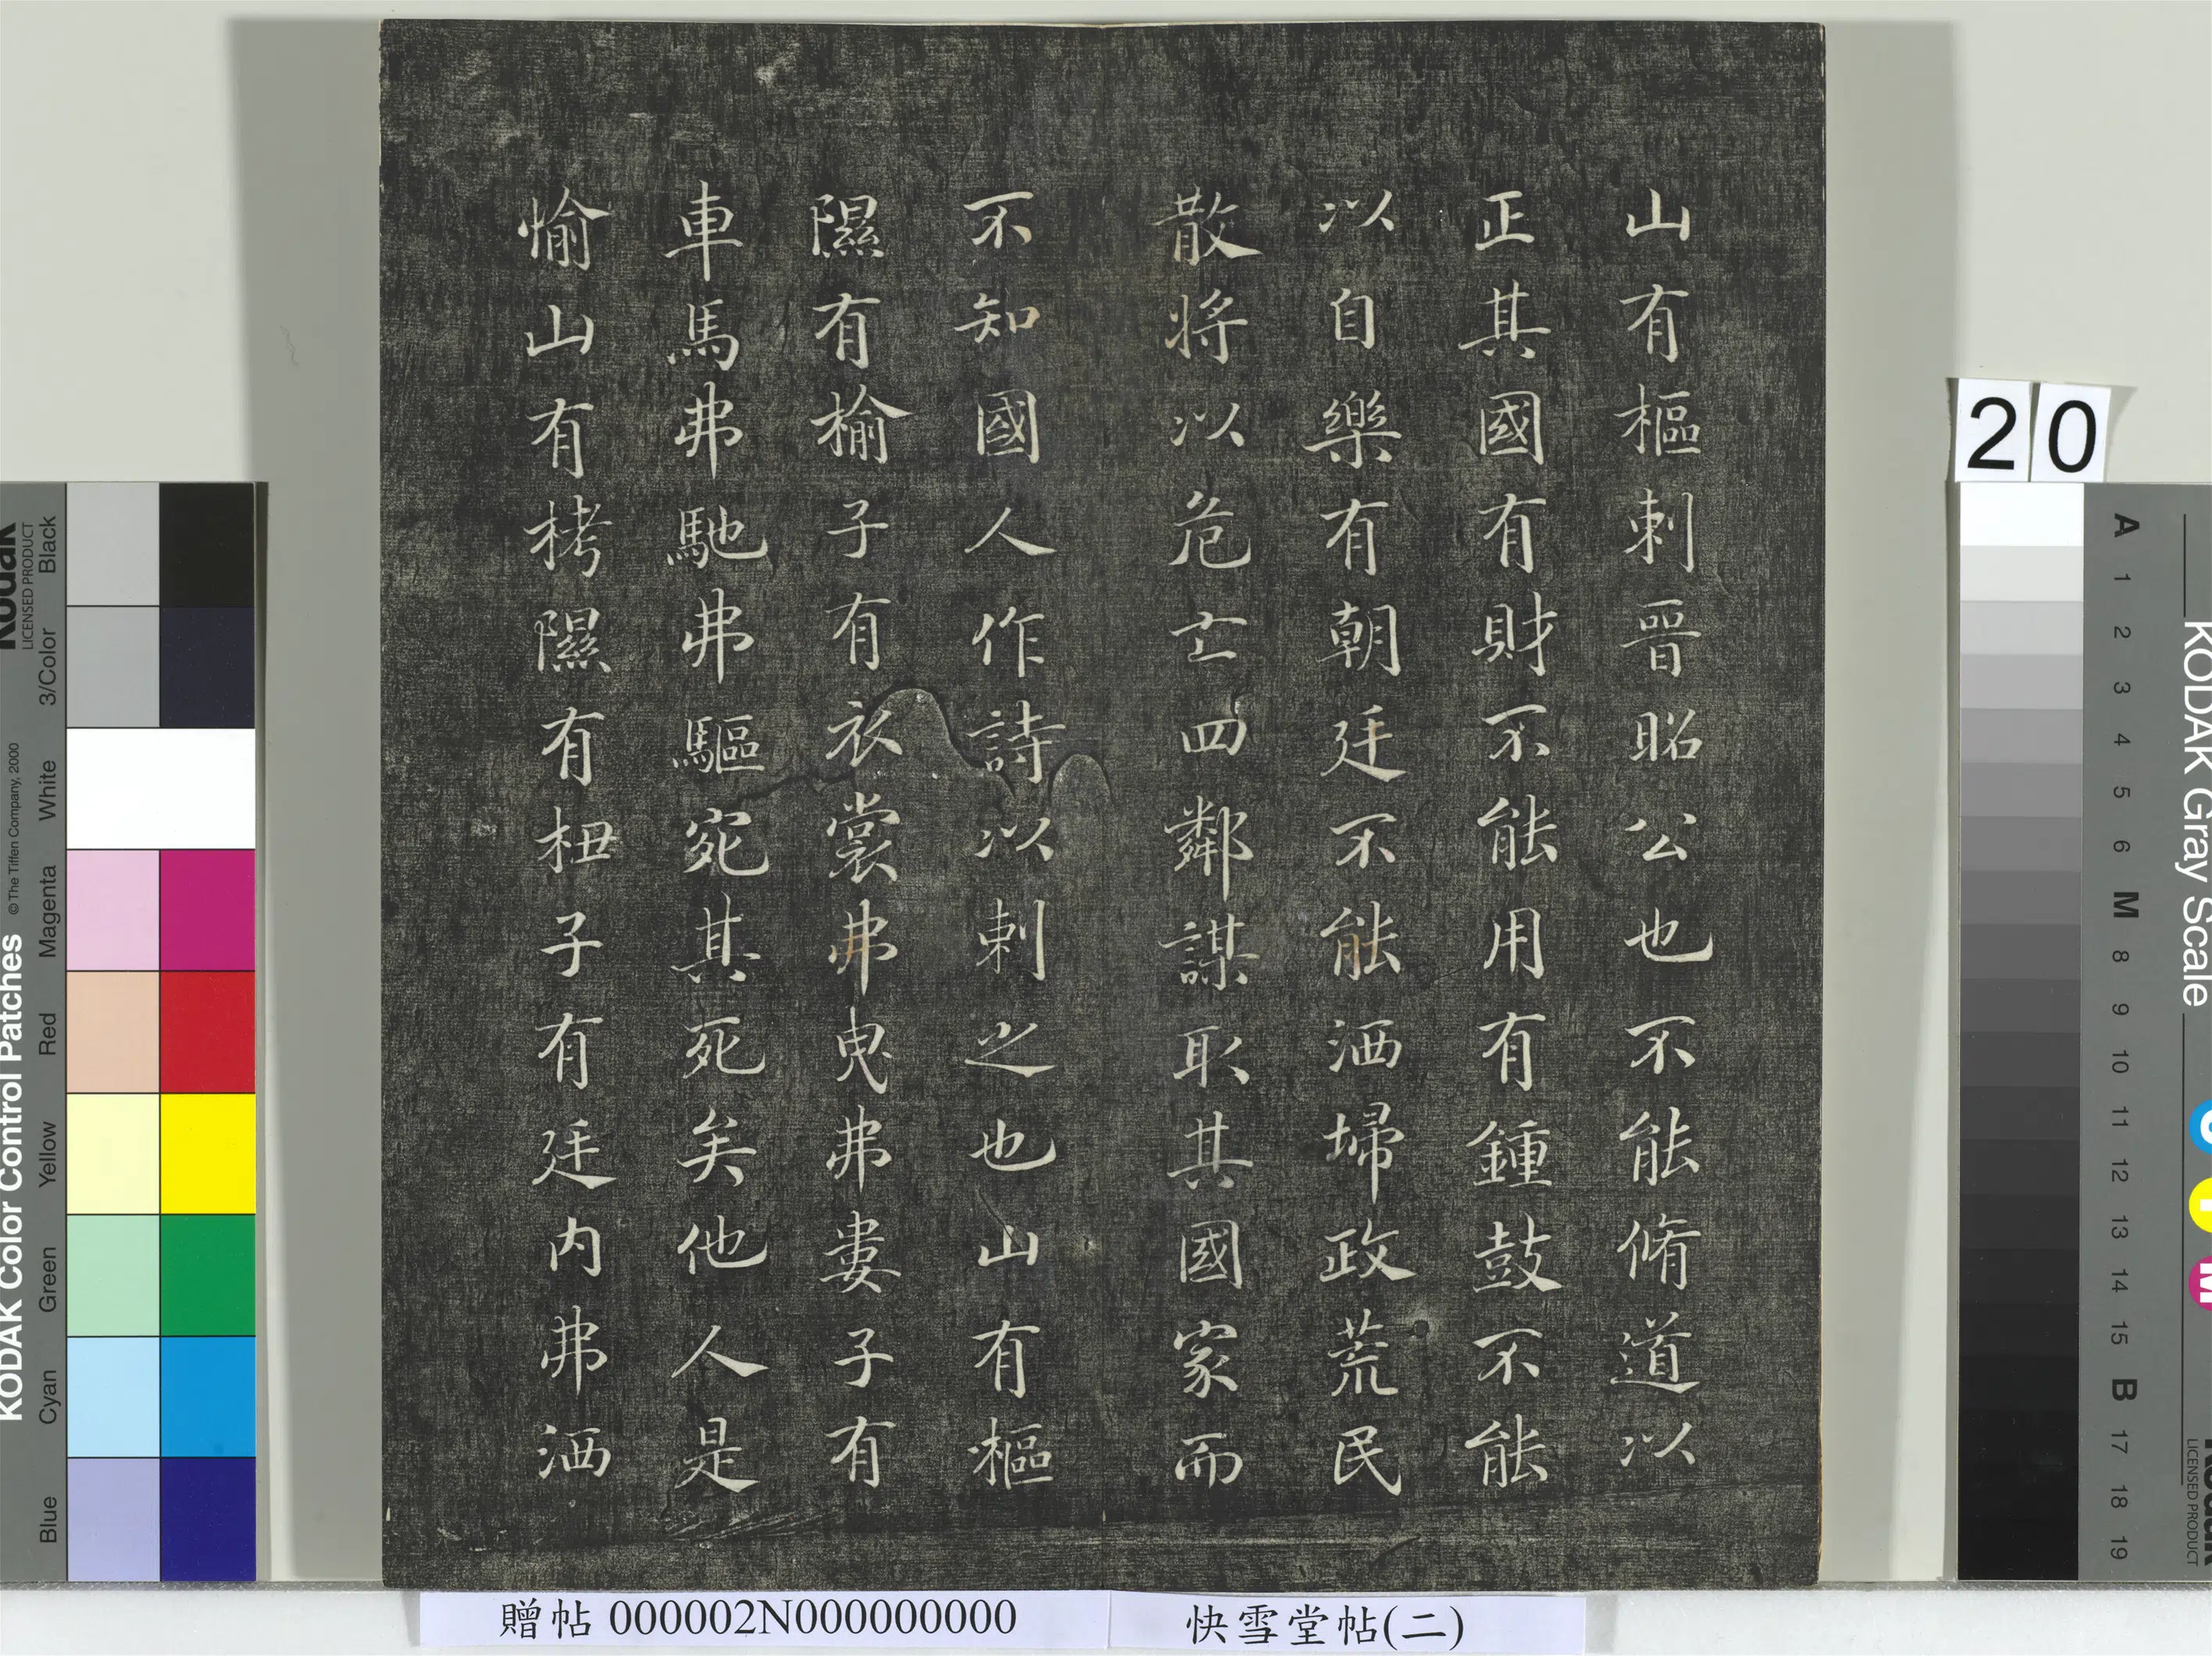 山有樞刺晉昭公也不能脩道以
正其國有財不能用有鍾鼓不能
以自樂有朝廷不能洒埽政荒民
散將以危亡四鄰謀取其國家而
不知國人作詩以刺之也山有樞
隰有榆子有衣裳弗曳弗婁子有
車馬弗馳弗驅宛其死矣他人是
愉山有栲隰有杻子有廷内弗洒
20
贈帖 000002N000000000
快雪堂帖(二)
KODAK Color Control Patches
© The Tiffen Company, 2000
Kodak
LICENSED PRODUCT
Black
3/Color
White
Magenta
Red
Yellow
Green
Cyan
Blue
KODAK Gray Scale
A 1 2 3 4 5 6 M 8 9 10 11 12 13 14 15 B 17 18 19
C
Y
M
Kodak
LICENSED PRODUCT